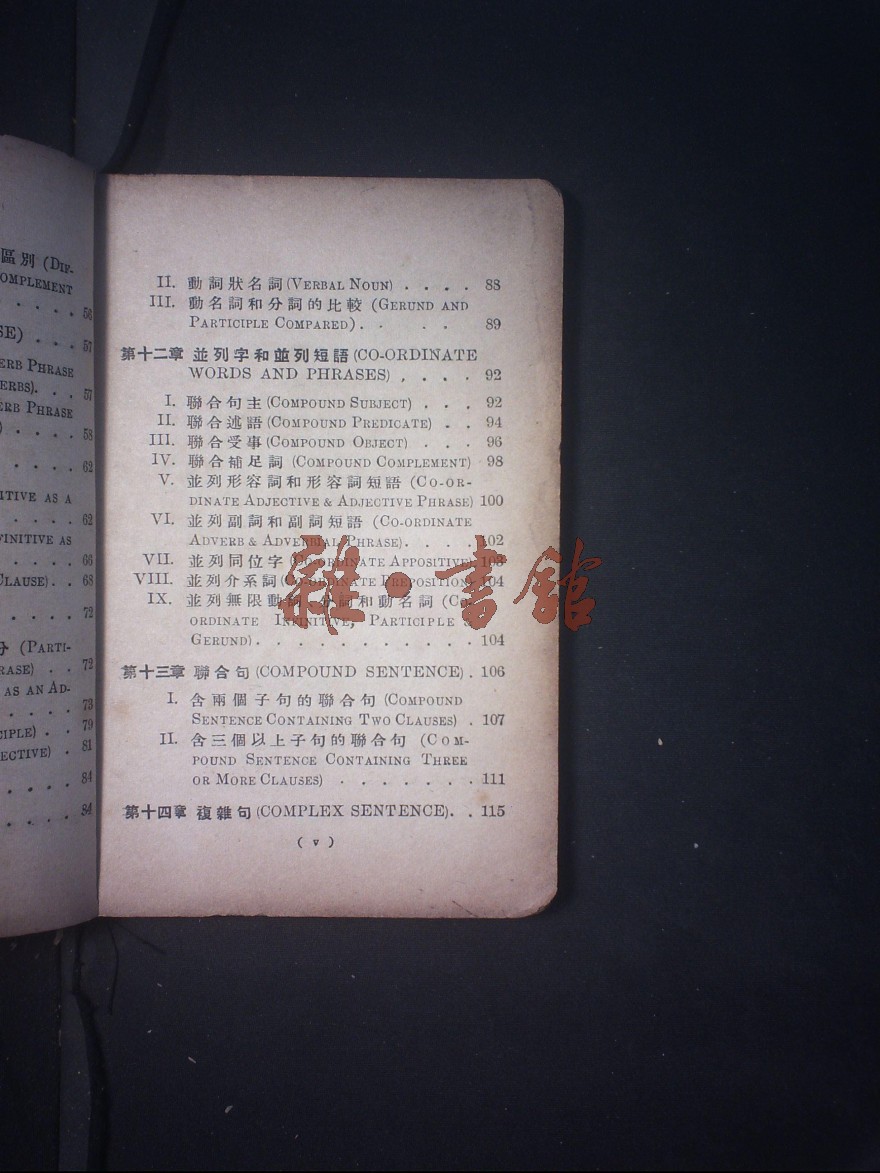 區別 (DIF-
COMPLEMENT
56
57
ERB PHRASE
ERBS). . . 57
ERB PHRASE
58
62
ITIVE AS A
62
FINITIVE AS
66
CLAUSE). . 68
72
分 (PARTI-
RASE) . . 72
AS AN AD-
73
CIPLE) . . 79
ECTIVE) . 81
84
84
II. 動詞狀名詞(VERBAL NOUN) . . . . 88
III. 動名詞和分詞的比較 (GERUND AND
PARTICIPLE COMPARED). . . . . 89
第十二章 並列字和並列短語(CO-ORDINATE
WORDS AND PHRASES) , . . . 92
I. 聯合句主(COMPOUND SUBJECT) . . . 92
II. 聯合述語(COMPOUND PREDICATE) . . 94
III. 聯合受事(COMPOUND OBJECT) . . . 96
IV. 聯合補足詞 (COMPOUND COMPLEMENT) 98
V. 並列形容詞和形容詞短語 (CO-OR-
DINATE ADJECTIVE & ADJECTIVE PHRASE) 100
VI. 並列副詞和副詞短語 (CO-ORDINATE
ADVERB & ADVERBIAL PHRASE). . . . 102
VII. 並列同位字 (CO-ORDINATE APPOSITIVE) 103
VIII. 並列介系詞(CO-ORDINATE PREPOSITION) 104
IX. 並列無限動詞, 分詞和動名詞 (CO-
ORDINATE INFINITIVE, PARTICIPLE &
GERUND). . . . . . . . . . . 104
第十三章 聯合句 (COMPOUND SENTENCE) . 106
I. 含兩個子句的聯合句 (COMPOUND
SENTENCE CONTAINING TWO CLAUSES) . 107
II. 含三個以上子句的聯合句 (COM-
POUND SENTENCE CONTAINING THREE
OR MORE CLAUSES) . . . . . . . 111
第十四章 複雜句 (COMPLEX SENTENCE). . 115
( v )
雜·書館